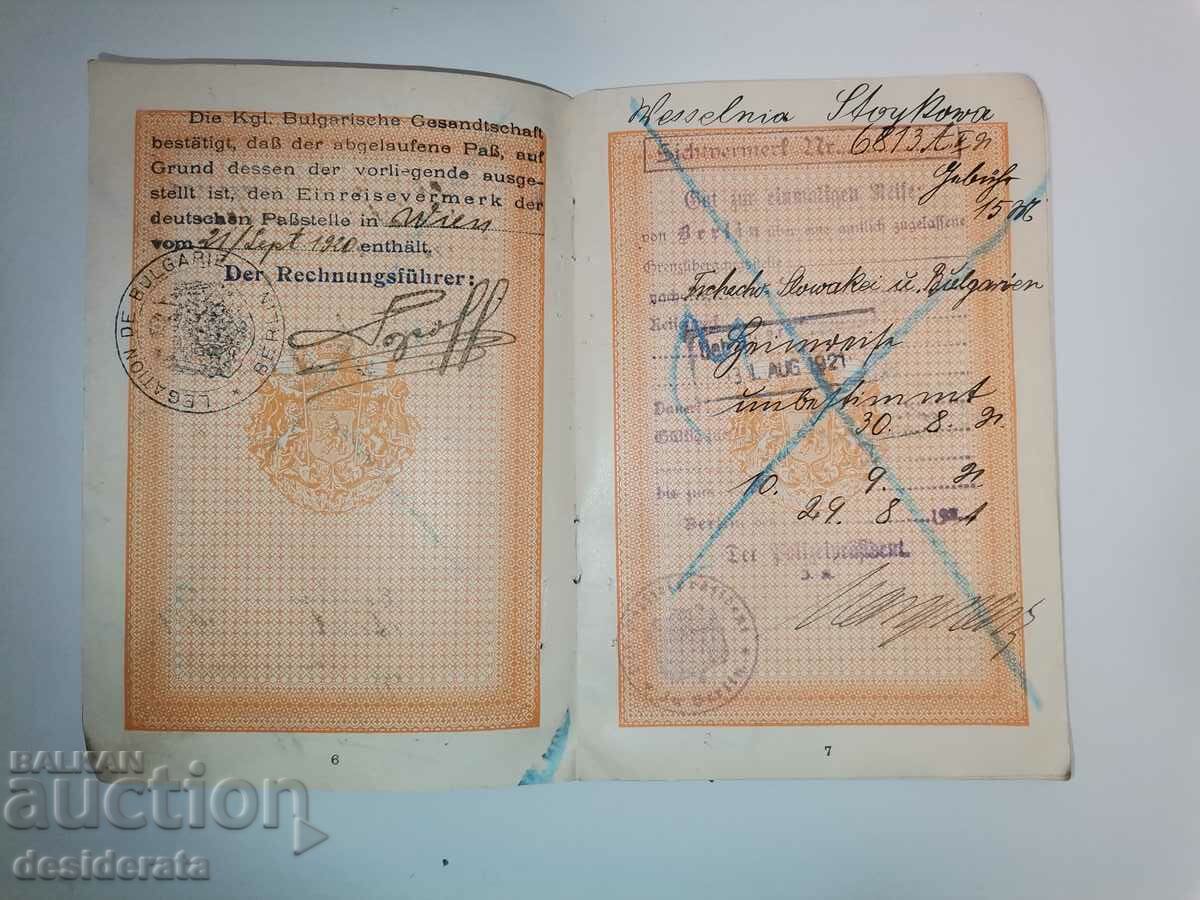 Die Kgl. Bulgarische Gesandtschaft
bestätigt, daß der abgelaufene Paß, auf
Grund dessen der vorliegende ausge-
stellt ist, den Einreisevermerk der
deutschen Paßstelle in Wien
vom 21/Sept 1920 enthält.
Der Rechnungsführer:
LEGATION DE BULGARIE BERLIN
6
Wesselnia Stoykowa
Sichtvermerk Nr. 6813
Gebühr
15 M
Gut zur einmaligen Reise
von Berlin über eine amtlich zugelassene
Grenzübergangsstelle
nach Tschecho-Slowakei u. Bulgarien
Heimreise
31 AUG 1921
Dauer unbestimmt
30. 8. 21
bis zum 10. 9. 21
Berlin, 29. 8. 1921
Der Polizeipräsident.
in Berlin
7
BALKAN
auction
desiderata